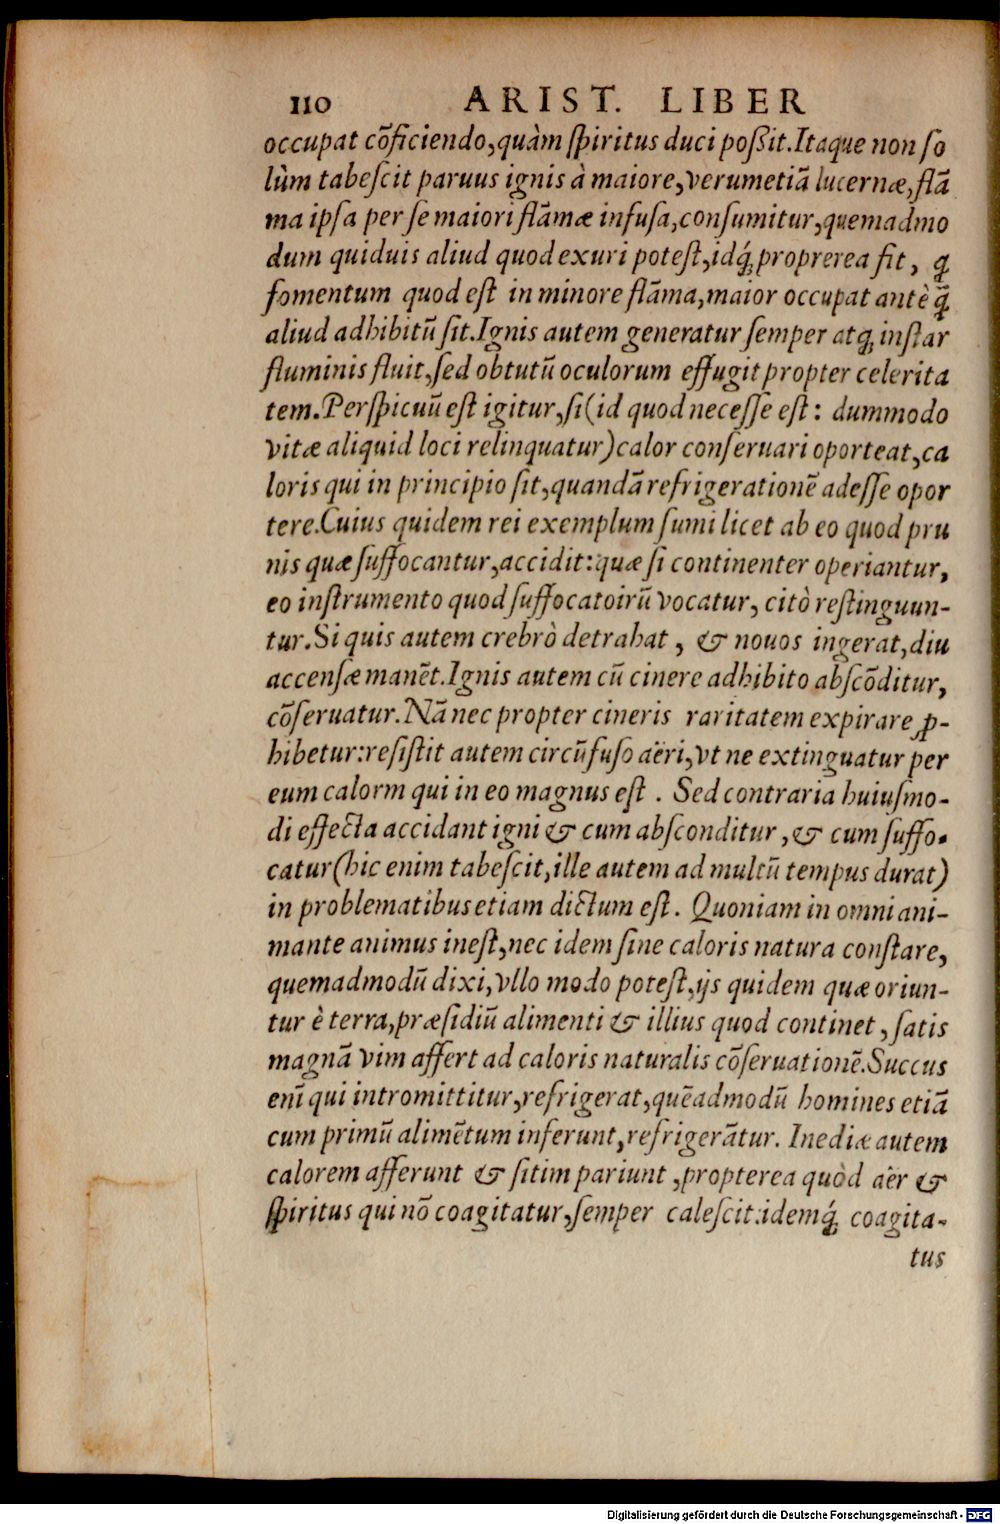 110 ARIST. LIBER
occupat cõficiendo,quàm ſpiritus duci poßit.Itaque non ſo
lùm tabeſcit paruus ignis à maiore,verumetiã lucernæ,flã
ma ipſa per ſe maiori flãmæ infuſa,conſumitur,quemadmo
dum quiduis aliud quod exuri poteſt,idq́;proprerea fit, ꝙ
fomentum quod eſt in minore flãma,maior occupat antè ꝙ̃
aliud adhibitũ ſit.Ignis autem generatur ſemper atq; inſtar
fluminis fluit,ſed obtutũ oculorum effugit propter celerita
tem.Perſpicuũ eſt igitur,ſi(id quod neceſſe eſt: dummodo
vitæ aliquid loci relinquatur)calor conſeruari oporteat,ca
loris qui in principio ſit,quandã refrigerationẽ adeſſe opor
tere.Cuius quidem rei exemplum ſumi licet ab eo quod pru
nis quæ ſuffocantur,accidit:quæ ſi continenter operiantur,
eo inſtrumento quod ſuffocatoirũ vocatur, citò reſtinguun-
tur.Si quis autem crebrò detrahat, & nouos ingerat,diu
accenſæ manẽt.Ignis autem cũ cinere adhibito abſcõditur,
cõſeruatur.Nã nec propter cineris raritatem expirare ꝓ-
hibetur:reſiſtit autem circũfuſo aëri,vt ne extinguatur per
eum calorm qui in eo magnus eſt. Sed contraria huiuſmo-
di effecta accidant igni & cum abſconditur,& cum ſuffo-
catur(hic enim tabeſcit,ille autem ad multũ tempus durat)
in problematibus etiam dictum eſt. Quoniam in omni ani-
mante animus ineſt,nec idem ſine caloris natura conſtare,
quemadmodũ dixi,vllo modo poteſt,ijs quidem quæ oriun-
tur è terra,præſidiũ alimenti & illius quod continet,ſatis
magnã vim affert ad caloris naturalis cõſeruationẽ.Succus
enĩ qui intromittitur,refrigerat,quẽadmodũ homines etiã
cum primũ alimẽtum inferunt,refrigerãtur. Inediæ autem
calorem afferunt & ſitim pariunt,propterea quòd aër &
ſpiritus qui nõ coagitatur,ſemper caleſcit:idemq́; coagita-
tus
Digitalisierung gefördert durch die Deutsche Forschungsgemeinschaft - DFG